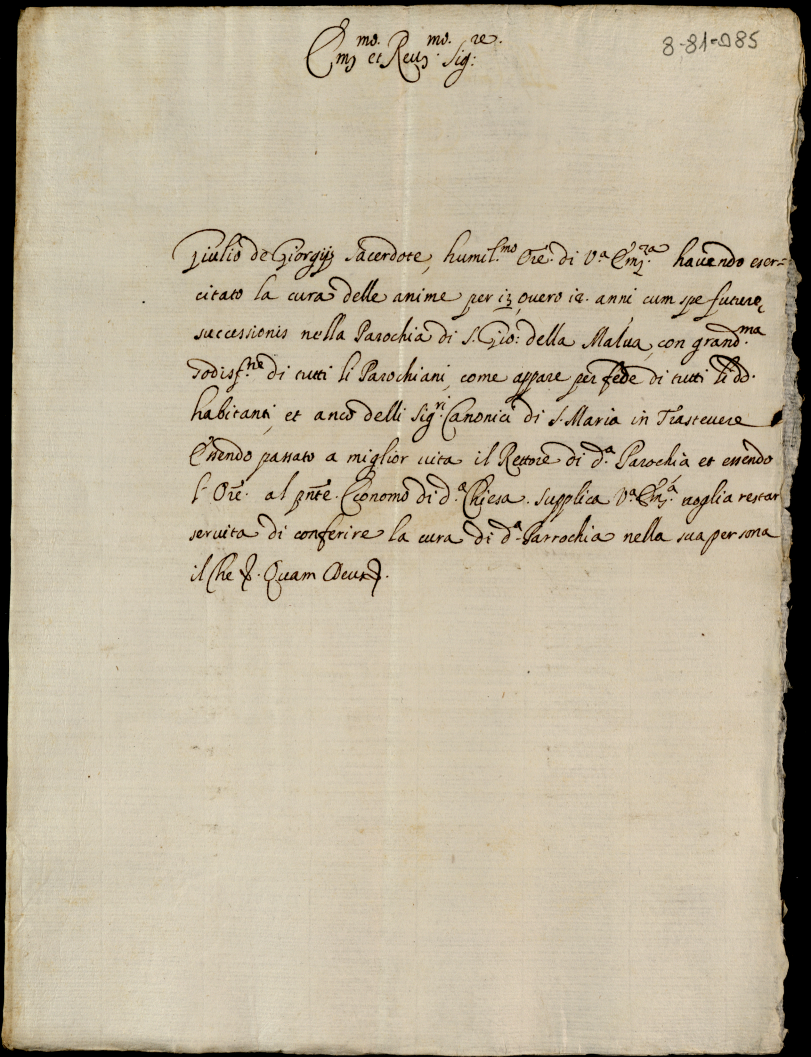 8-81-085
Em.mo et Reu.mo Sig.re
Giulio de Giorgijs Sacerdote, humil.mo Ore. di V.a Em.za hauendo eser=
citato la cura delle anime per 13 ouero 12. anni cum spe futurę
successionis nella Parochia di S. Gio: della Malua, con grand.ma
sodisf.ne di tutti li Parochiani, come appare per fede di tutti li dd.
habitanti, et anco delli Sig.ri Canonici di S. Maria in Trasteuere
Essendo passato a miglior uita il Rettore di d.a Parochia et essendo
l'Ore. al pnte. Economo di d.a Chiesa. supplica V.a Em.a uoglia restar
seruita di conferire la cura di d.a Parrochia nella sua persona
il che &. Quam Deus &.